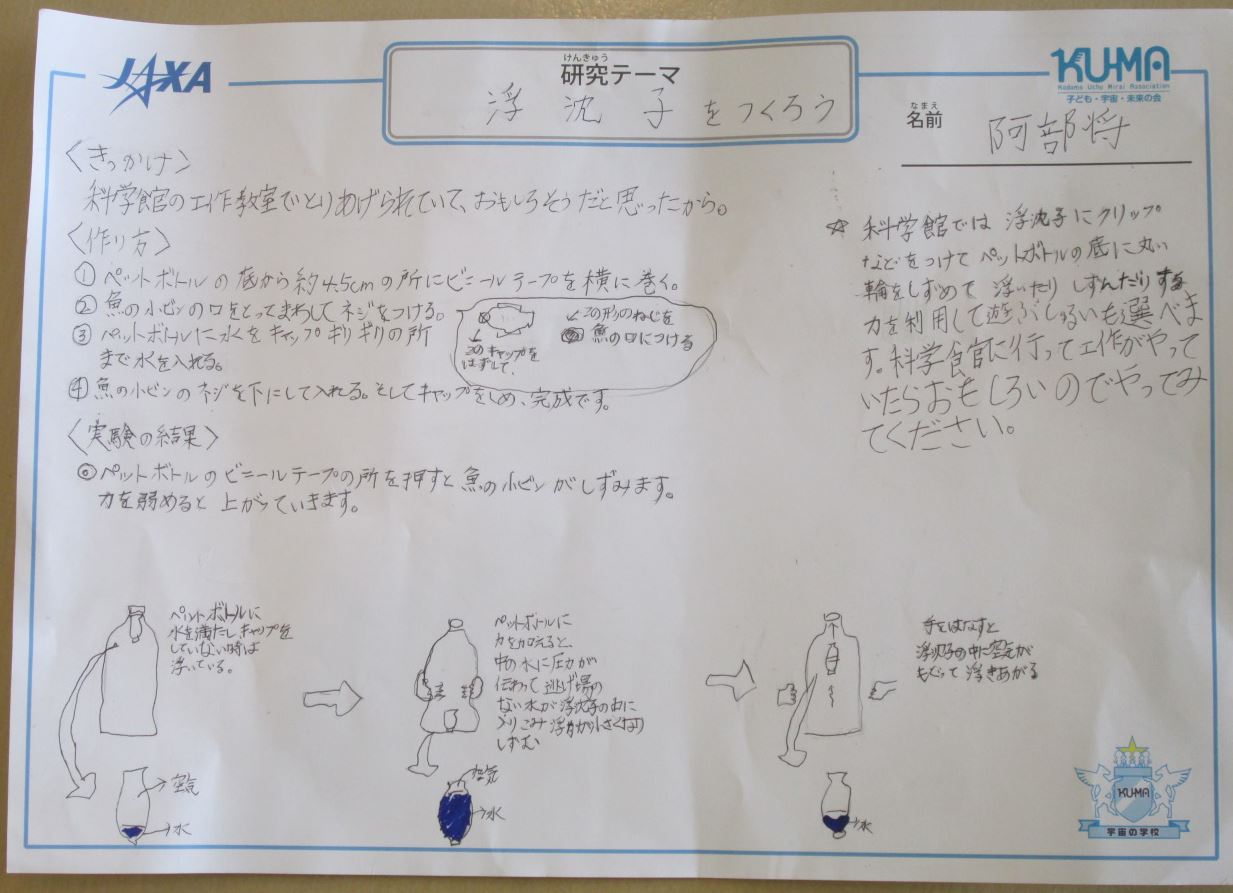 JAXA
けんきゅう
研究テーマ
浮沈子をつくろう
KU-MA
Kodomo Uchu Mirai Association
子ども・宇宙・未来の会
なまえ
名前
阿部将
〈きっかけ〉
科学館の工作教室でとりあげられていて、おもしろそうだと思ったから。
〈作り方〉
① ペットボトルの底から約4.5cmの所にビニールテープを横に巻く。
② 魚の小ビンの口をとってまわしてネジをつける。
③ ペットボトルに水をキャップギリギリの所
まで水を入れる。
このキャップを
はずして、
この形のねじを
魚の口につける
④ 魚の小ビンのネジを下にして入れる。そしてキャップをしめ、完成です。
〈実験の結果〉
◎ペットボトルのビニールテープの所を押すと魚の小ビンがしずみます。
力を弱めると上がっていきます。
☆ 科学館では浮沈子にクリップ
などをつけてペットボトルの底に丸い
輪をしずめて浮いたりしずんだりする
力を利用して遊ぶしゅるいも選べま
す。科学館に行って工作がやって
いたらおもしろいのでやってみ
てください。
ペットボトルに
水を満たしキャップを
していない時は
浮いている。
空気
水
ペットボトルに
力を加えると、
中の水に圧力が
伝わって逃げ場の
ない水が浮沈子の中に
入りこみ浮力が小さくなり
しずむ
空気
水
手をはなすと
浮沈子の中に空気が
もどって浮きあがる
水
KU-MA
宇宙の学校